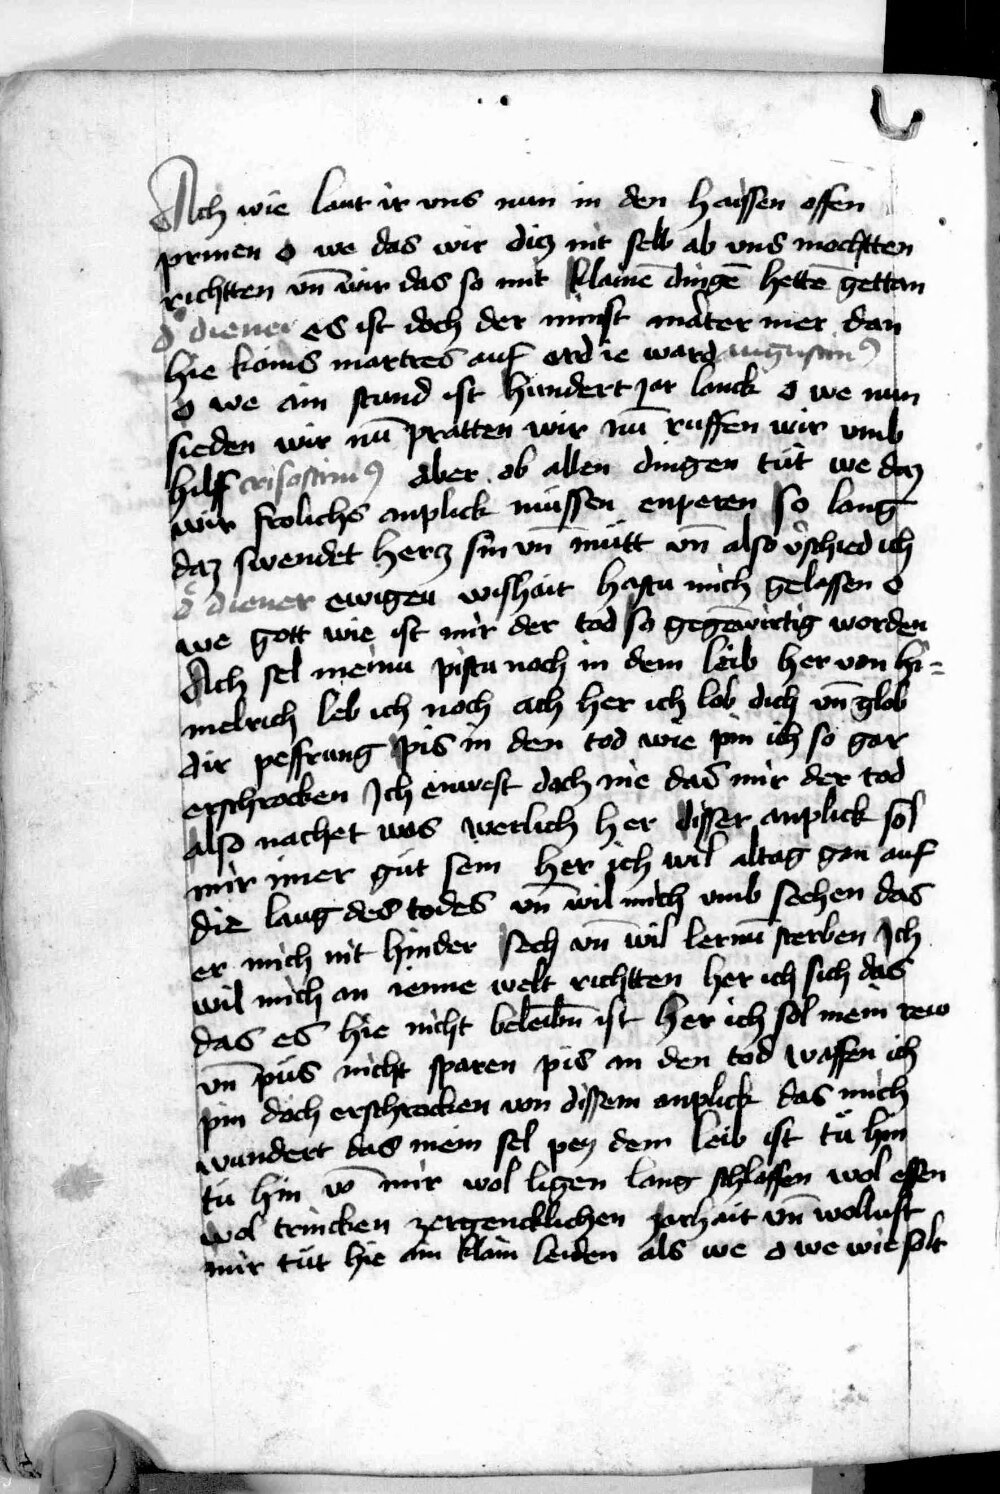 Ach wie laut ir vns nun in den haissen offen
prinen o we das wir diz nit selb ab vns mochtten
richtten vn̄ wir das so mit klainē dingē hettē gettan
dͦ diener es ist doch der minst mater mer dan
hie kains martres auf erd ie ward augustinꝰ
o we ain stund ist hundert jar lanck o we nun
sieden wir nū pratten wir nū ruffen wir vmb
hilff crisostimꝰ aber ob allen dingen tüt we daz
wir frolichs anplick müssen enperen so lang
daz swendet hercz sin vn̄ mütt vn̄ also v̓schied ich
dͦ diener ewigen wishait hastu mich gelassen o
we gott wie ist mir der tod so gegēwirtig worden
Ach sel meinu pistu noch in dem leib her von hi=
melrich leb ich noch ach her ich lob dich vn̄ glob
dir pessrung pis in den tod wie pin ich so gar
erschrocken Ich enwest doch nie das mir der tod
also nachet was werlich her disser anplick sol
mir imer güt sein her ich wil altag gan auf
die laug des todes vn̄ wil mich vmb sechen das
er mich nit hinder sech vn̄ wil lernū sterben Ich
wil mich an ienne welt richtten her ich sich das
das es hie nicht beleibn̄ ist her ich sol mein rew
vn̄ püs nicht sparen pis in den tod waffen ich
pin doch erschrocken von dissem anplick das mich
wundert das mein sel pey dem leib ist tü hin
tü hin vō mir wol ligen lang schlaffen wol essen
wol trincken zergencklichen zarhait vn̄ wollust
mir tüt hie ain klain leiden als we o we wie solt